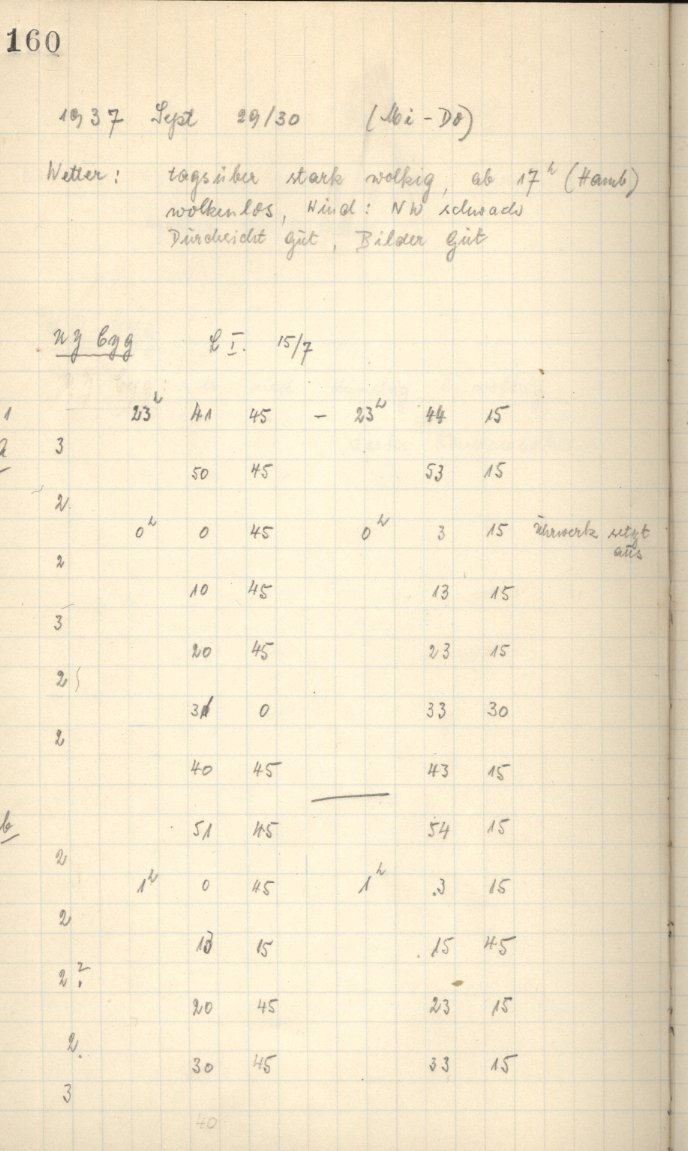 160
1937 Sept 29/30 (Mi - Do)
Wetter: tagsüber stark wolkig, ab 17h (Hamb)
wolkenlos, Wind: NW schwach
Durchsicht gut, Bilder gut
Cyg L I. 15/7
1 23h 41 45 – 23h 44 15
a 3
50 45 53 15
2
0h 0 45 0h 3 15 Uhrwerk setzt
aus
2
10 45 13 15
3
20 45 23 15
2
31 0 33 30
2
40 45 43 15
b 51 45 54 15
2
1h 0 45 1h 3 15
2
13 15 15 45
2?
20 45 23 15
2.
30 45 33 15
3
40